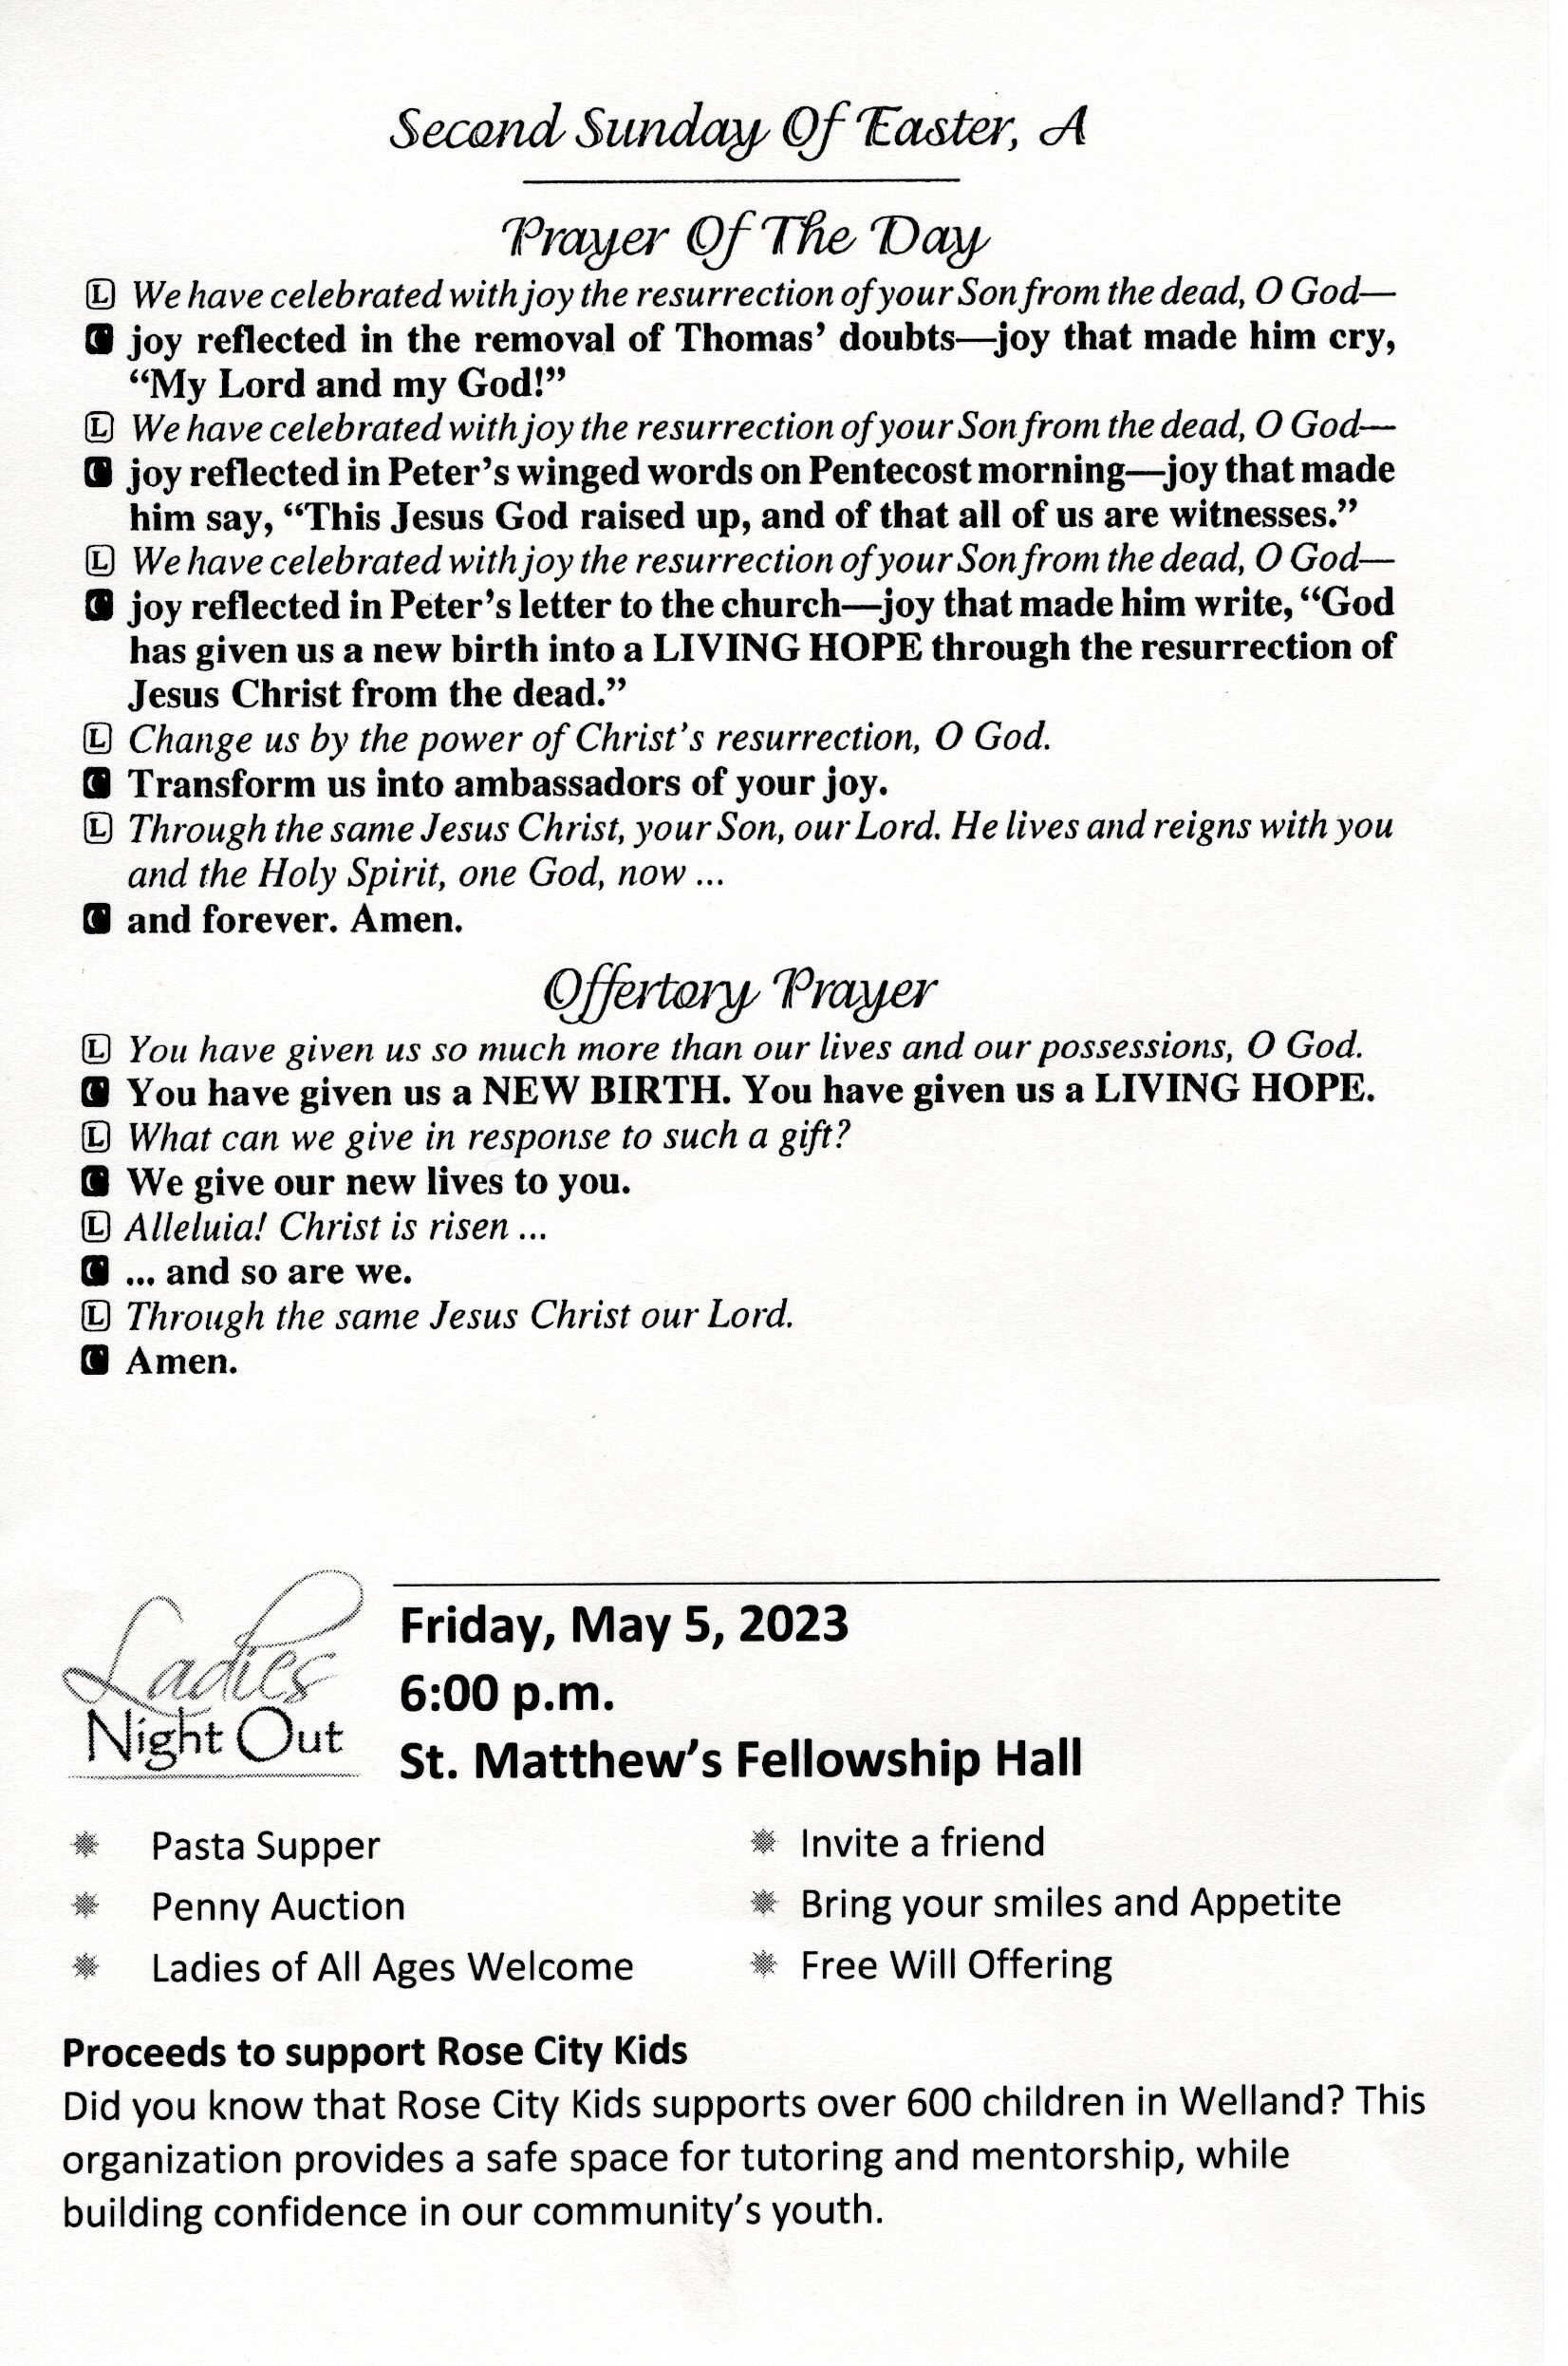 Second Sunday Of Easter, A
Prayer Of The Day
L We have celebrated with joy the resurrection of your Son from the dead, O God—
C joy reflected in the removal of Thomas’ doubts—joy that made him cry,
“My Lord and my God!”
L We have celebrated with joy the resurrection of your Son from the dead, O God—
C joy reflected in Peter’s winged words on Pentecost morning—joy that made
him say, “This Jesus God raised up, and of that all of us are witnesses.”
L We have celebrated with joy the resurrection of your Son from the dead, O God—
C joy reflected in Peter’s letter to the church—joy that made him write, “God
has given us a new birth into a LIVING HOPE through the resurrection of
Jesus Christ from the dead.”
L Change us by the power of Christ’s resurrection, O God.
C Transform us into ambassadors of your joy.
L Through the same Jesus Christ, your Son, our Lord. He lives and reigns with you
and the Holy Spirit, one God, now ...
C and forever. Amen.
Offertory Prayer
L You have given us so much more than our lives and our possessions, O God.
C You have given us a NEW BIRTH. You have given us a LIVING HOPE.
L What can we give in response to such a gift?
C We give our new lives to you.
L Alleluia! Christ is risen ...
C ... and so are we.
L Through the same Jesus Christ our Lord.
C Amen.
Ladies
Night Out
Friday, May 5, 2023
6:00 p.m.
St. Matthew’s Fellowship Hall
Pasta Supper
Penny Auction
Ladies of All Ages Welcome
Invite a friend
Bring your smiles and Appetite
Free Will Offering
Proceeds to support Rose City Kids
Did you know that Rose City Kids supports over 600 children in Welland? This
organization provides a safe space for tutoring and mentorship, while
building confidence in our community’s youth.